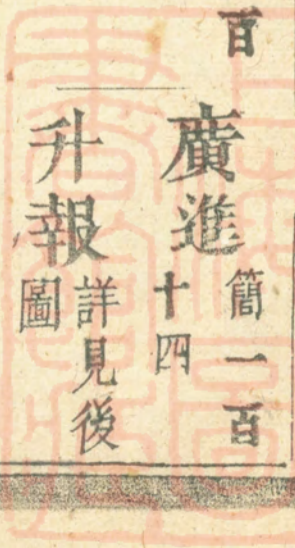 百
廣進 簡一百十四
升報 詳見後圖